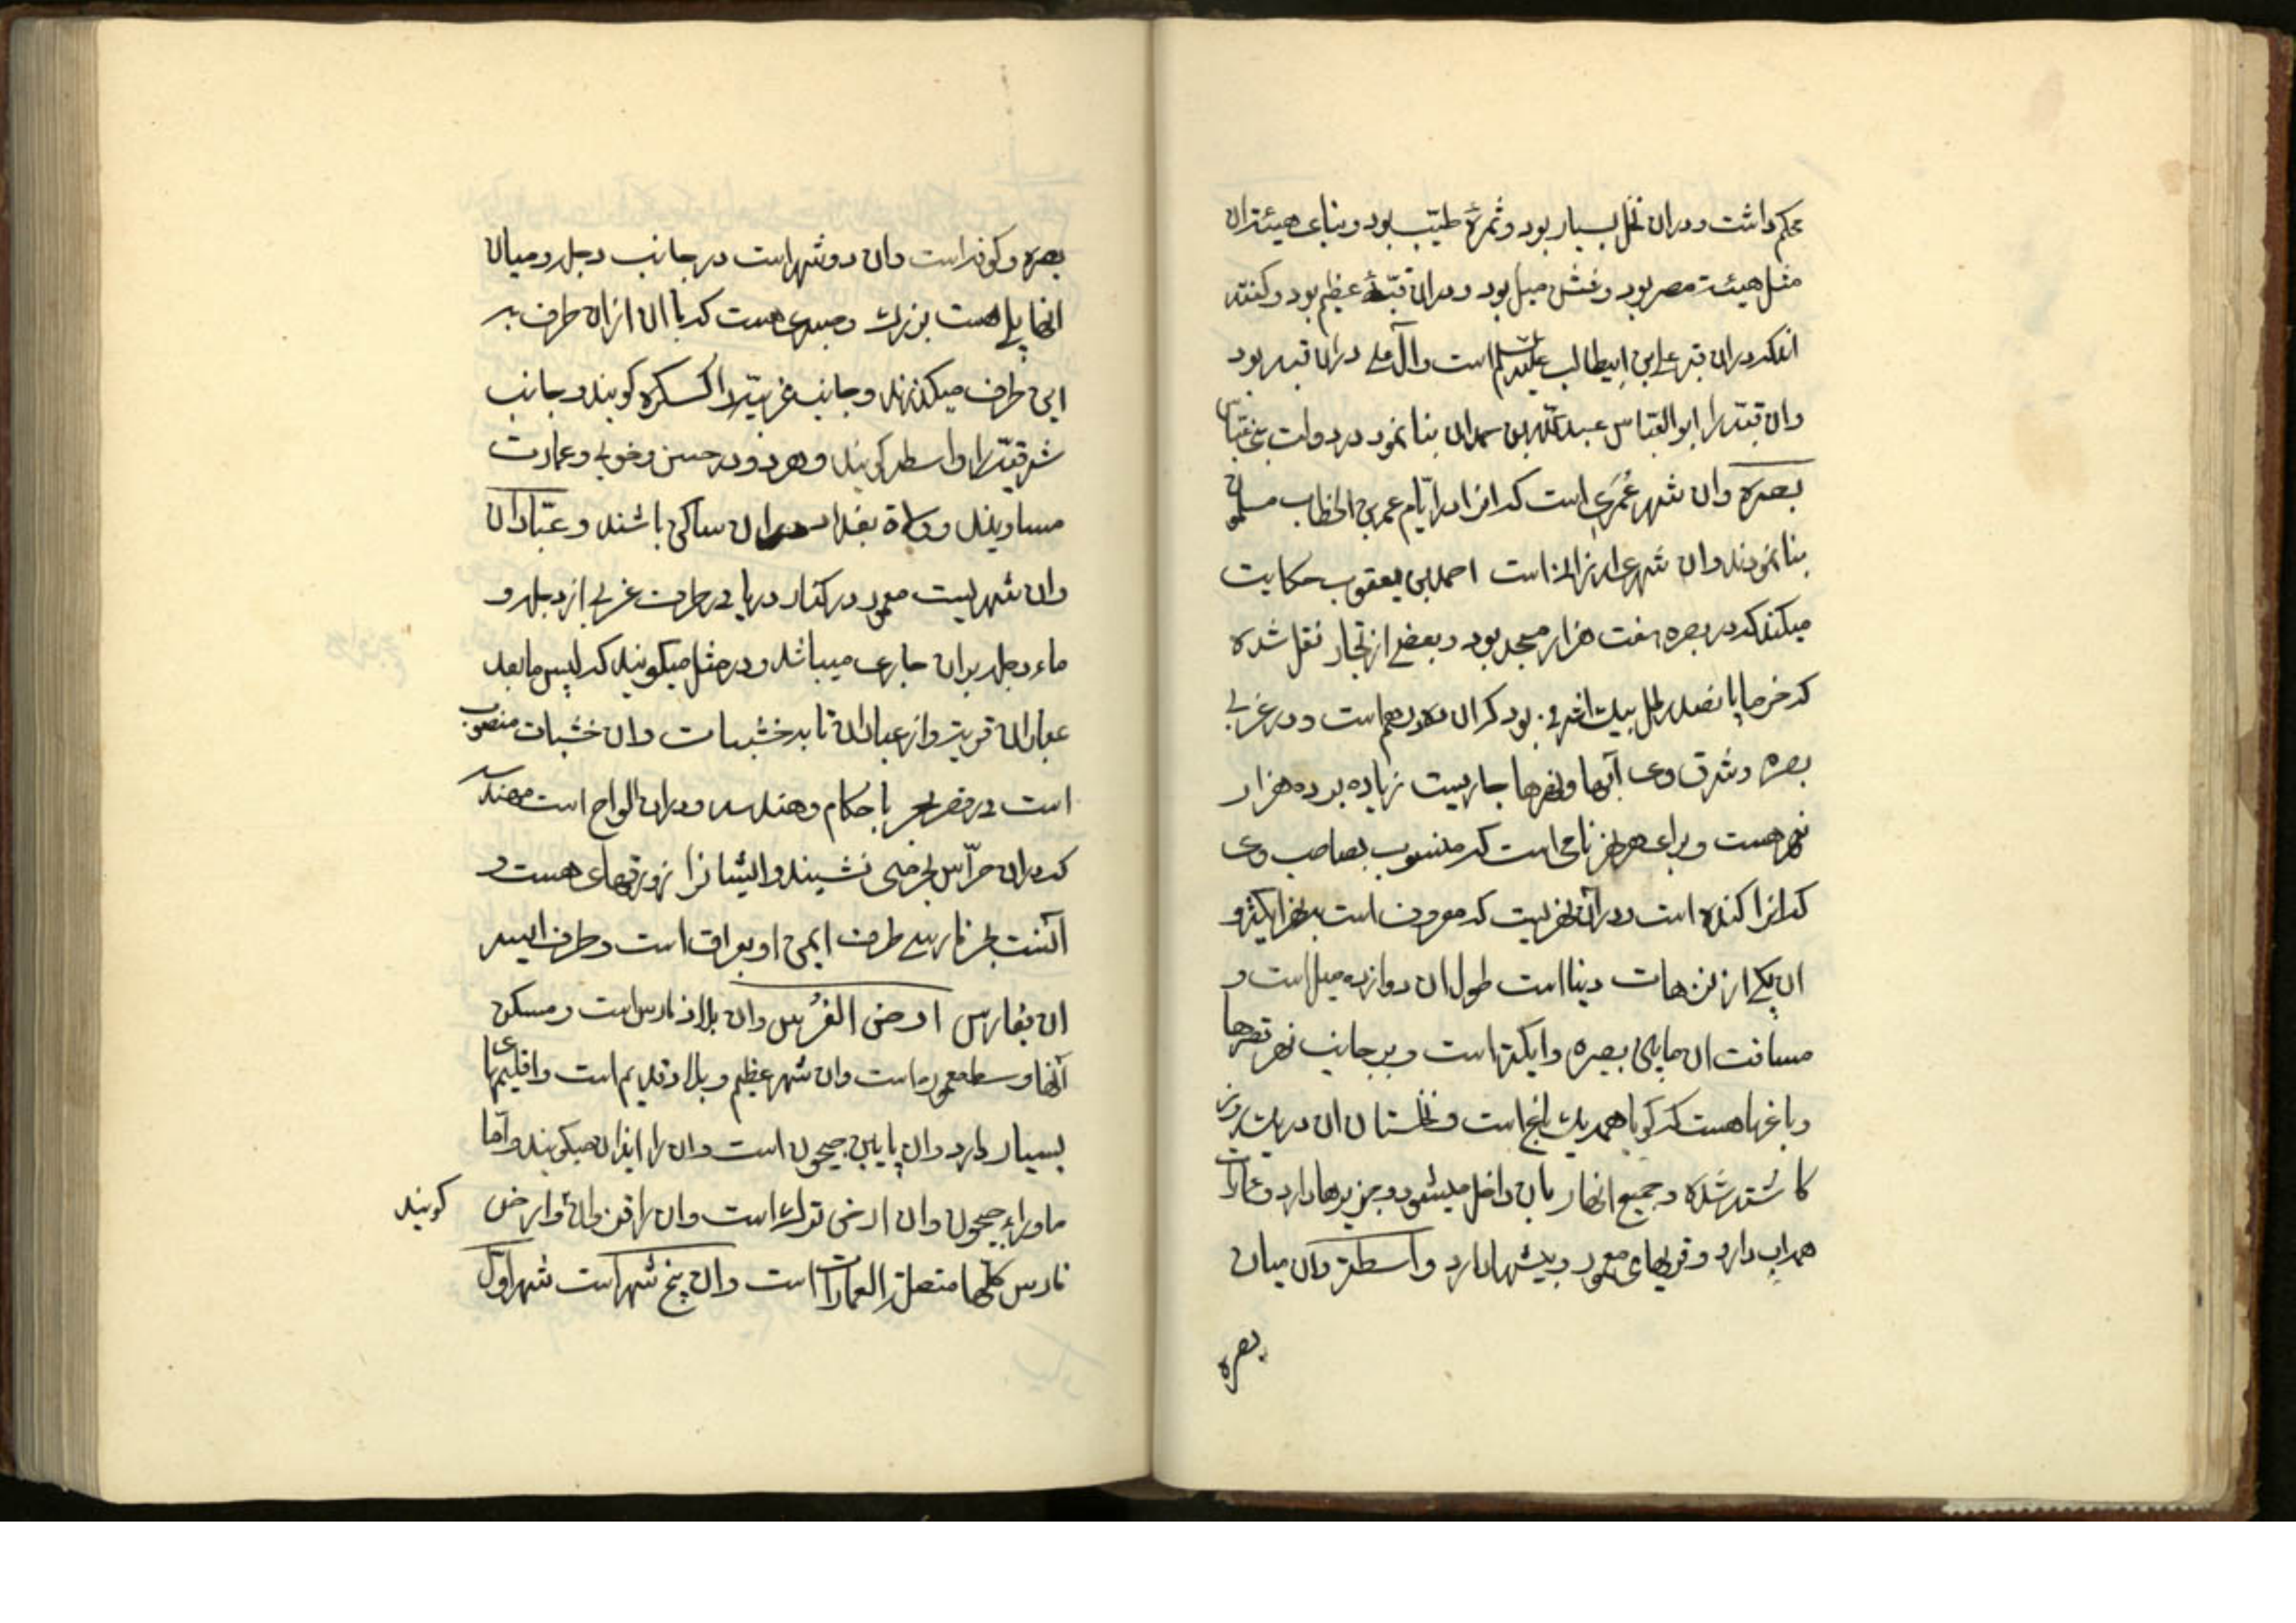 محکم داشت ودران نخل بسیار بود وثمرهٔ طیّب بود وبنای هیئت ان
مثل هیئت مصر بود وشش میل بود ودران قبّهٔ عظیم بود وکفته
اندکه دران قبر علی ابن ابیطالب علیه السلام است وآل علی دران قبه بود
وان قبّه را ابو العبّاس عبد الله بن حمدان بنا نمود در دولت بنی عبّاس
بصره وان شهر عُمَری است که انرا در ایّام عمر بن الخطاب مسلمون
بنا نمودند وان شهر است احمد بن یعقوب حکایت
میکند که در بصره هفت هزار مسجد بود وبعضی از تجار نقل شده
که خرما پانصد رطل بیک بود که ان درهم است ودر غربی
بصره وشرق وی آبها ونهرها جاریست زیاده بر ده هزار
نهر هست وبرای هر نهر نامی است که منسوب بصاحب وی
که انرا کنده است ودرآن نهریست که معروف است بنهر ایکه و
ان یکی از نزهات دنیا است طول ان دوازده میل است و
مسافت ان مابین بصره وایکه است وبر جانب نهر قصرها
وباغها هست که کویا همه یک باغ است ونخلستان ان در یک روز
کاشته شده وجمیع انهار بان داخل میشود وجزیرها دارد وعمارات
هم اب دارد وقریهای معمور وبیشها دارد واسطه وان میان
بصره
بصره وکوفه است وان دو شهر است در جانب دجله ومیان
انها پلی هست بزرک وجسری هست که باان ازان طرف به
این طرف میکذرند وجانب غربیّه را کسکره کویند وجانب
شرقیّه را واسط کویند وهر دو در حسن وخوبی وعمارت
مساویند وولاة بغداد دران ساکن باشند وعبّادان
وان شهریست معمور در کنار دریا در طرف غربی از دجله و
ماء دجله بران جاری میباشد ودر مثل میکویند که لیس مابعد
عبادان قریة واز عبادان تا به خشبات وان خشبات منصوب
است در قعر بحر باحکام وهندسه ودران الواح است مهندسه
که دران حرّاس بحر می نشینند وایشانرا زورقهای هست و
آنست بحر فارسی طرف ایمن او بعراق است وطرف ایسر
ان بفارس ارض الفُرس وان بلاد فارس است ومسکن
آنها وسط معموره است وان شهر عظیم وبلاد قدیم است واقلیمهای
بسیار دارد وان پایین جیحون است وان را ایران میکویند واما
ماوراء جیحون وان ارض ترک است وان را وارض کویند
فارس کلّها متصلة العمارات است وان پنج شهر است شهر اوّل